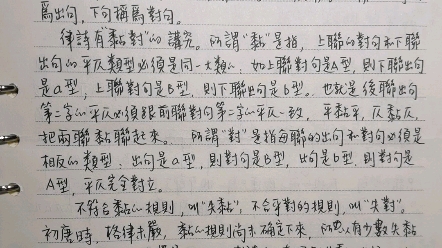 爲出句，下句稱爲對句。
律詩有"黏對"的講究。所謂"黏"是指，上聯的對句和下聯
出句的平仄類型必須是同一大類的，如上聯對句是A型，則下聯出句
是a型；上聯對句是B型，則下聯出句是b型。也就是後聯出句
第二字的平仄必須跟前聯對句第二字的平仄一致，平黏平，仄黏仄，
把兩聯黏聯起來。所謂"對"是指每聯的出句和對句必須是
相反的類型：出句是a型，則對句是B型，出句是b型，則對句是
A型，平仄完全對立。
不符合黏的規則，叫"失黏"，不合乎對的規則，叫"失對"。
初唐時，格律未嚴，黏的規則尚未確定下來，所以有少數失黏